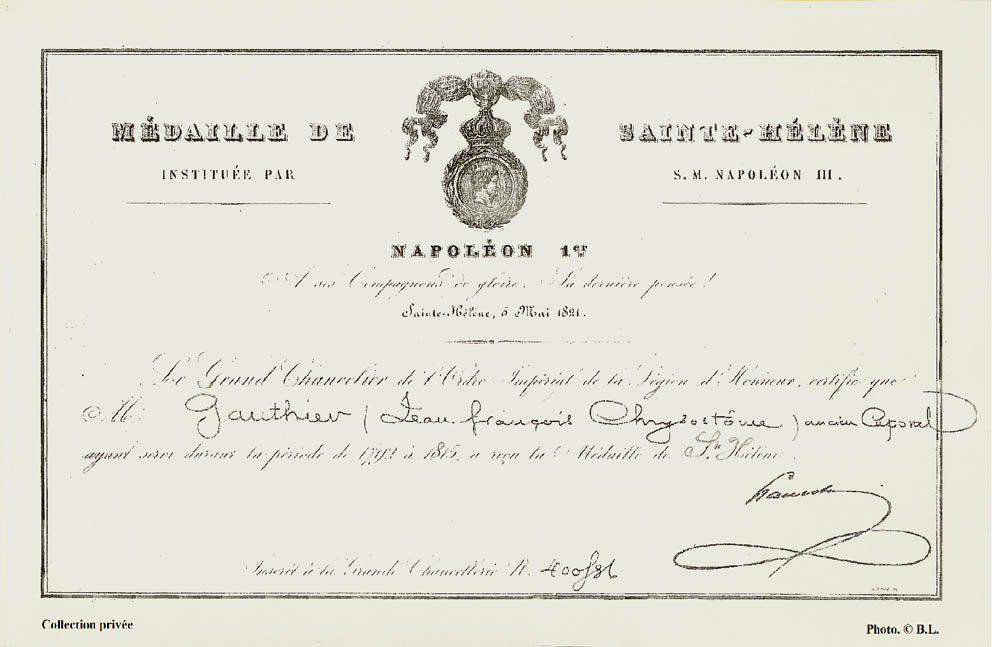 MÉDAILLE DE SAINTE-HÉLÈNE
INSTITUÉE PAR S. M. NAPOLÉON III.
NAPOLÉON 1er
A ses Compagnons de gloire. Sa dernière pensée !
Sainte-Hélène, 5 Mai 1821.
Le Grand Chancelier de l'Ordre Impérial de la Légion d'Honneur, certifie que
M. Gauthier (Jean françois Chrysostôme) ancien Caporal
ayant servi durant la période de 1792 à 1815, a reçu la Médaille de Ste Hélène.
Inscrit à la Grande Chancellerie N.
Collection privée
Photo. © B.L.